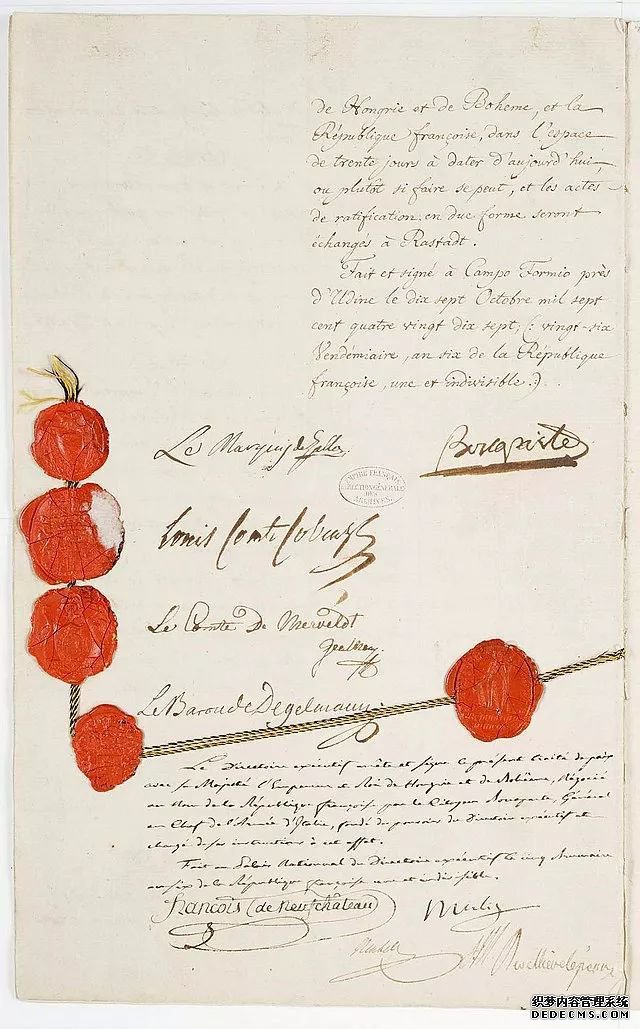 de Hongrie et de Boheme, et la
République françoise, dans l'espace
de trente jours à dater d'aujourd'hui,
ou plutôt si faire se peut, et les actes
de ratification en due forme seront
échangés à Rastadt.
Fait et signé à Campo Formio près
d'Udine le dix sept Octobre mil sept
cent quatre vingt dix sept, (: vingt-six
Vendémiaire, an six de la République
françoise, une et indivisible.)
Le Marquis de Gallo
Bonaparte
EMPIRE FRANÇAIS
DIRECTION GÉNÉRALE
DES
ARCHIVES.
Louis Comte Cobenzl
Le Comte De Merveldt
Le Baron de Degelmann
Le Directoire exécutif arrête et signe le présent traité de paix
avec sa Majesté l'Empereur et Roi de Hongrie et de Bohême, Négocié
au Nom de la République française par le Citoyen Bonaparte, Général
en Chef de l'Armée d'Italie, fondé de pouvoirs du Directoire exécutif et
chargé de ses instructions à cet effet.
Fait au Palais National du Directoire exécutif le cinq Brumaire
an six de la République française une et indivisible.
François (de neufchâteau)
织梦内容管理系统
DEDECMS.COM